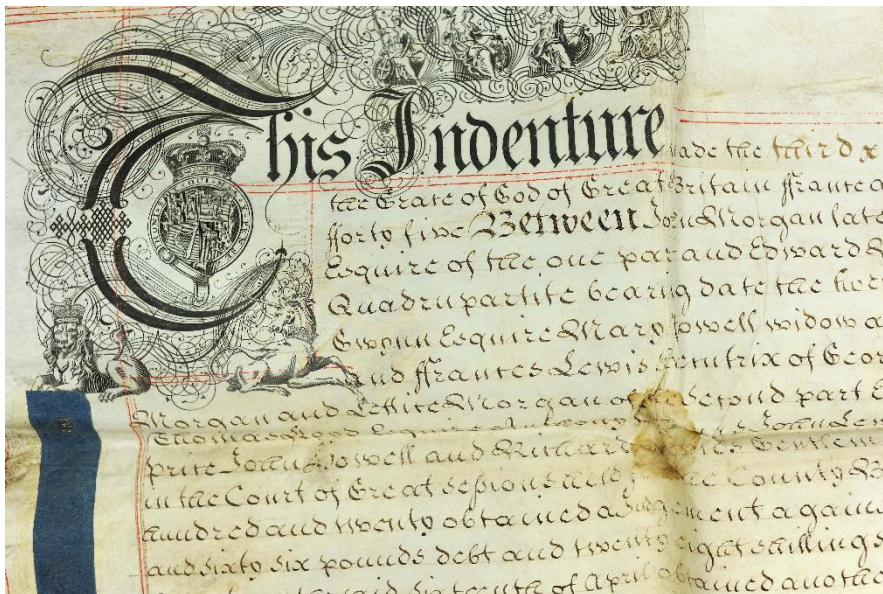 This Indenture made the third
the Grace of God of Great Britain ffrance a
fforty five Between John Morgan late
Esquire of the one part and Edward
Quadrupartite bearing date the
Gwynn Esquire Mary Powell widow a
and ffrances Lewis Executrix of Geor
Morgan and Lettice Morgan of the second part
Thomas Esquire of
price John Powell and Richard Gentlem
in the Court of Great sessions held County
hundred and twenty obtained a Judgement again
and sixty six pounds debt and twenty eight shillings
the said sixteenth of April obtained anothe